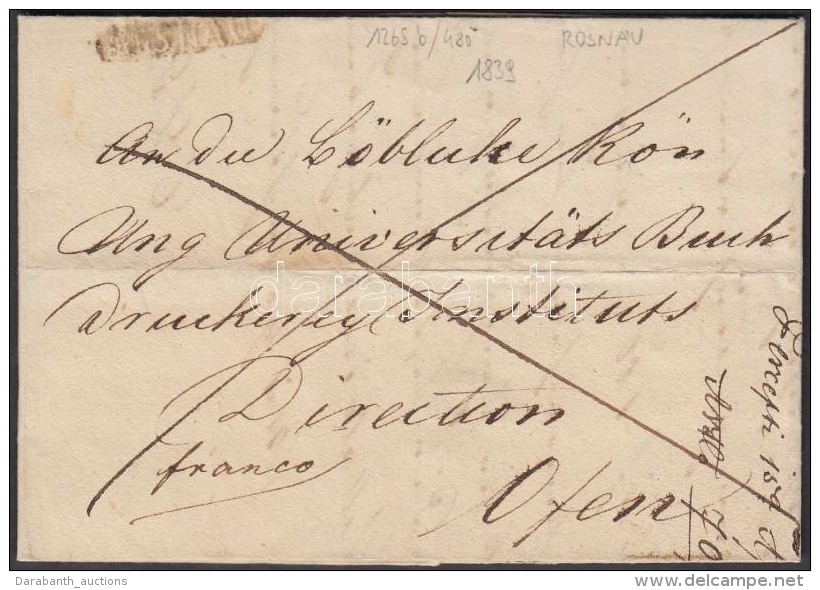 ROSNAU
1265 b/480 ROSNAU
1839
An die Löbliche Kön
Ung Universitäts Buch
Druckerey Instituts
Direction
franco
Ofen
darabanth
Darabanth_auctions
delcampe.net